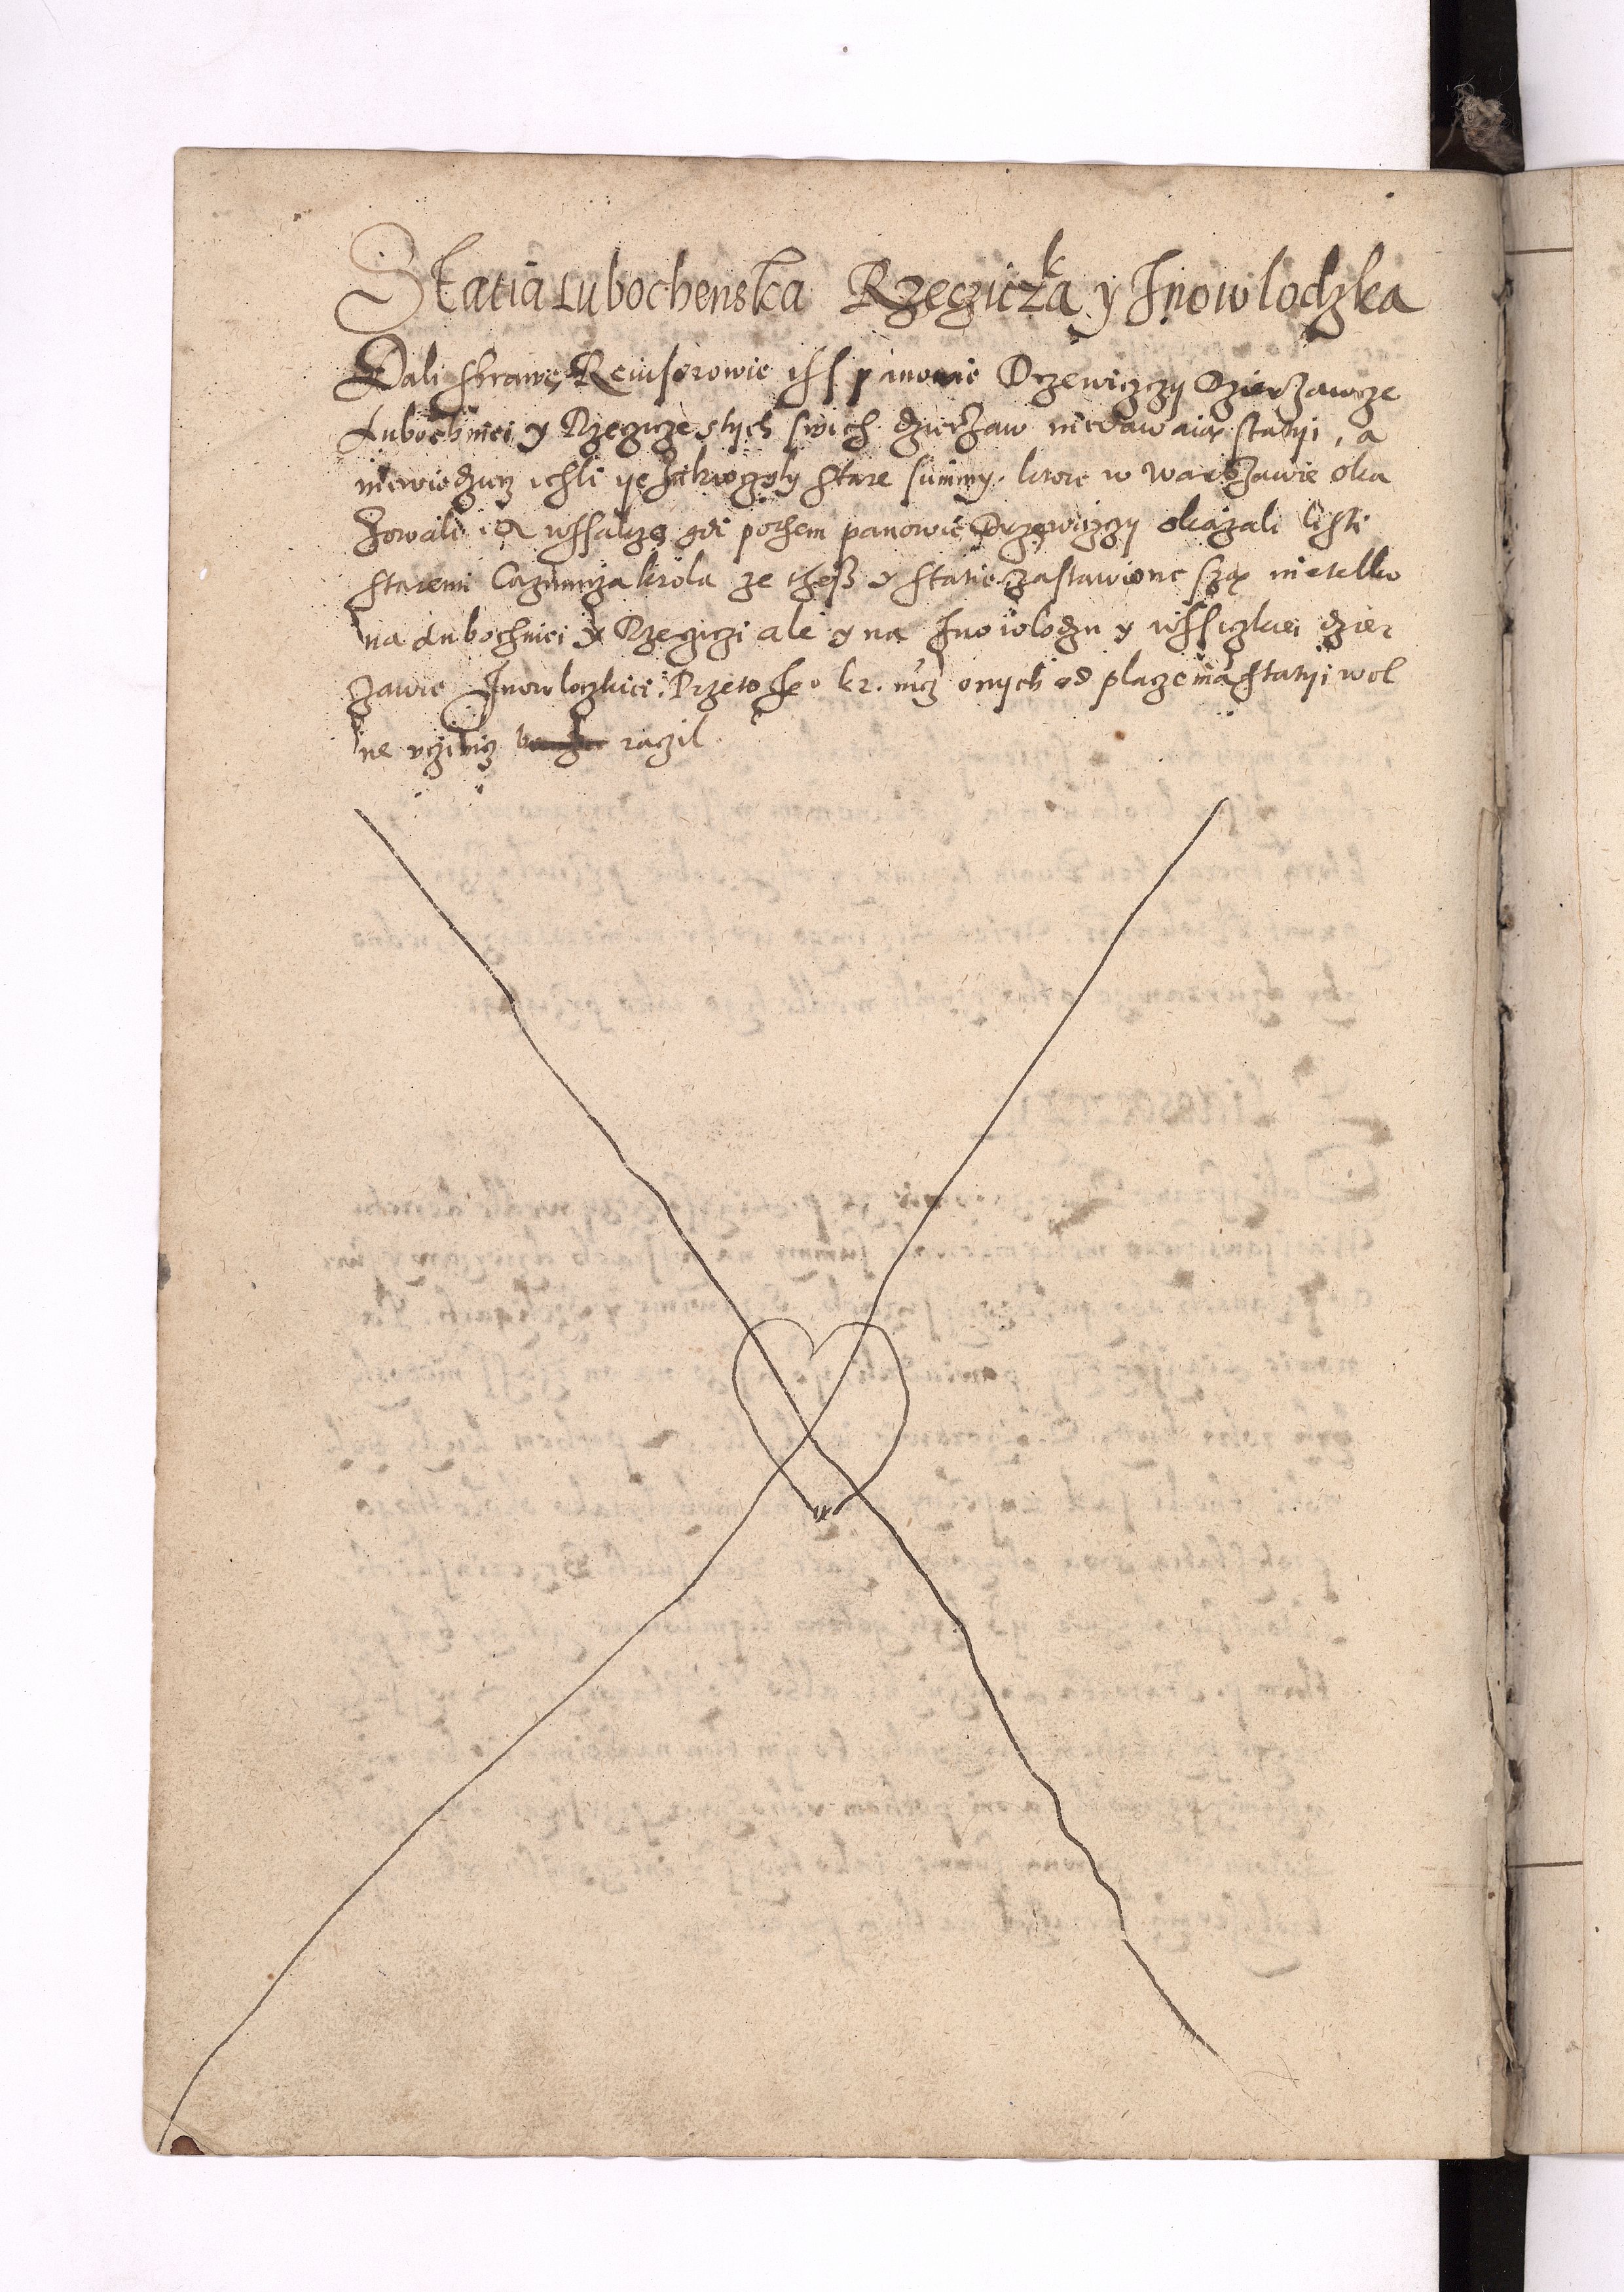 Stacia Lubochenska Rzecziczka y Jnowlodzka
Dali sprawę Rewisorowie iss panowie Drzewiczzy Dzierzawcze
Lubochniei y Rzecicze stych swich dzierzaw niedawaią statyi, a
niewiedzącz iesli ye stare summy, ktore w Warszawie oka
zowali. A wssakze gdi pothem panowie Drzewiczzy okazali listi
staremi Cazimirza krola ze thesz y statie zastawione sząp nietelko
na Lubochniei y Rzeciczi ale y na Jnowlodzu y wssitzkiei dzier
zawie Jnowlodzkiei. Przeto Je° kr. mcz onych od placzenia statyi wol
ne vczinicz raczil